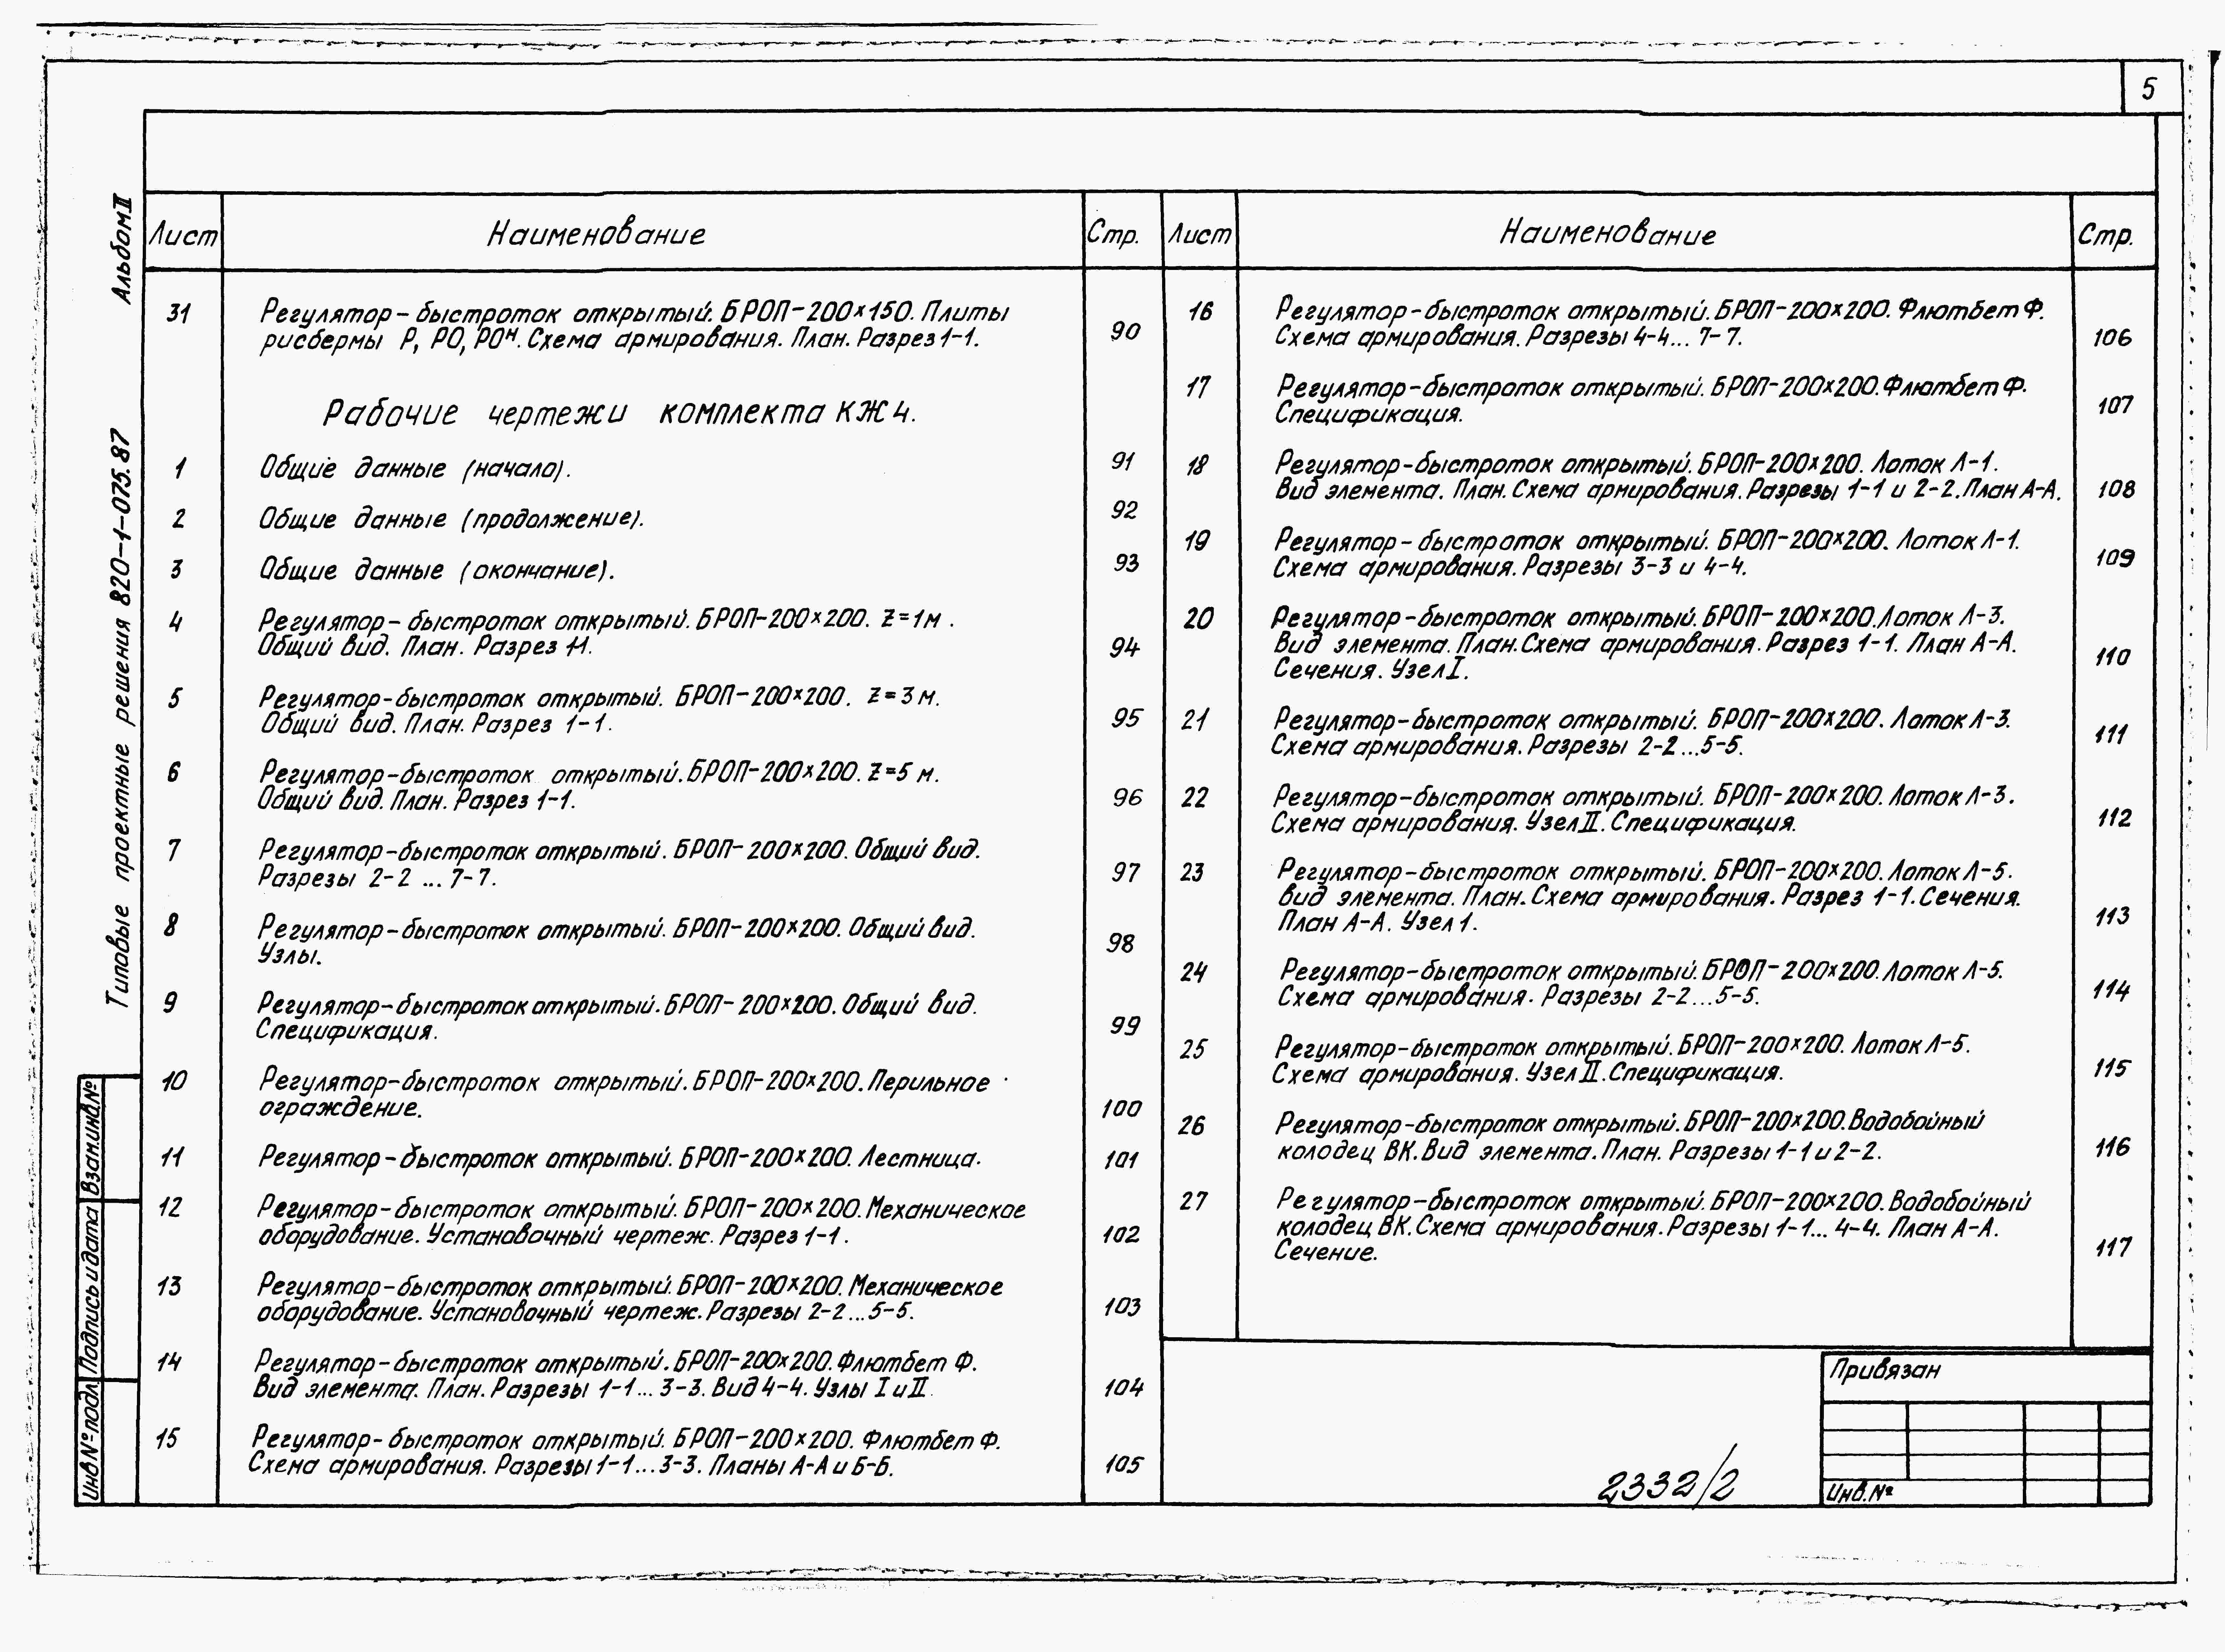 5
Альбом II
Типовые проектные решения 820-1-075.87
Взам.инв.№
Подпись и дата
Инв №подл.
Лист
Наименование
Стр.
31
Регулятор-быстроток открытый. БРОП-200×150. Плиты
рисбермы Р, РО, РОм. Схема армирования. План. Разрез 1-1.
90
Рабочие чертежи комплекта КЖ4.
1
Общие данные (начало).
91
2
Общие данные (продолжение).
92
3
Общие данные (окончание).
93
4
Регулятор-быстроток открытый. БРОП-200×200. Z=1м.
Общий вид. План. Разрез 1-1.
94
5
Регулятор-быстроток открытый. БРОП-200×200. Z=3м.
Общий вид. План. Разрез 1-1.
95
6
Регулятор-быстроток открытый. БРОП-200×200. Z=5 м.
Общий вид. План. Разрез 1-1.
96
7
Регулятор-быстроток открытый. БРОП-200×200. Общий вид.
Разрезы 2-2 ... 7-7.
97
8
Регулятор-быстроток открытый. БРОП-200×200. Общий вид.
Узлы.
98
9
Регулятор-быстроток открытый. БРОП-200×200. Общий вид.
Спецификация.
99
10
Регулятор-быстроток открытый. БРОП-200×200. Перильное
ограждение.
100
11
Регулятор-быстроток открытый. БРОП-200×200. Лестница.
101
12
Регулятор-быстроток открытый. БРОП-200×200. Механическое
оборудование. Установочный чертеж. Разрез 1-1.
102
13
Регулятор-быстроток открытый. БРОП-200×200. Механическое
оборудование. Установочный чертеж. Разрезы 2-2...5-5.
103
14
Регулятор-быстроток открытый. БРОП-200×200. Флютбет Ф.
Вид элемента. План. Разрезы 1-1... 3-3. Вид 4-4. Узлы I и II.
104
15
Регулятор-быстроток открытый. БРОП-200×200. Флютбет Ф.
Схема армирования. Разрезы 1-1...3-3. Планы А-А и Б-Б.
105
Лист
Наименование
Стр.
16
Регулятор-быстроток открытый. БРОП-200×200. Флютбет Ф.
Схема армирования. Разрезы 4-4... 7-7.
106
17
Регулятор-быстроток открытый. БРОП-200×200. Флютбет Ф.
Спецификация.
107
18
Регулятор-быстроток открытый. БРОП-200×200. Лоток Л-1.
Вид элемента. План. Схема армирования. Разрезы 1-1 и 2-2. План А-А.
108
19
Регулятор-быстроток открытый. БРОП-200×200. Лоток Л-1.
Схема армирования. Разрезы 3-3 и 4-4.
109
20
Регулятор-быстроток открытый. БРОП-200×200. Лоток Л-3.
Вид элемента. План. Схема армирования. Разрез 1-1. План А-А.
Сечения. Узел I.
110
21
Регулятор-быстроток открытый. БРОП-200×200. Лоток Л-3.
Схема армирования. Разрезы 2-2...5-5.
111
22
Регулятор-быстроток открытый. БРОП-200×200. Лоток Л-3.
Схема армирования. Узел II. Спецификация.
112
23
Регулятор-быстроток открытый. БРОП-200×200. Лоток Л-5.
вид элемента. План. Схема армирования. Разрез 1-1. Сечения.
План А-А. Узел 1.
113
24
Регулятор-быстроток открытый. БРОП-200×200. Лоток Л-5.
Схема армирования. Разрезы 2-2...5-5.
114
25
Регулятор-быстроток открытый. БРОП-200×200. Лоток Л-5.
Схема армирования. Узел II. Спецификация.
115
26
Регулятор-быстроток открытый. БРОП-200×200. Водобойный
колодец ВК. Вид элемента. План. Разрезы 1-1 и 2-2.
116
27
Регулятор-быстроток открытый. БРОП-200×200. Водобойный
колодец ВК. Схема армирования. Разрезы 1-1... 4-4. План А-А.
Сечение.
117
Привязан
Инв.№
2332/2